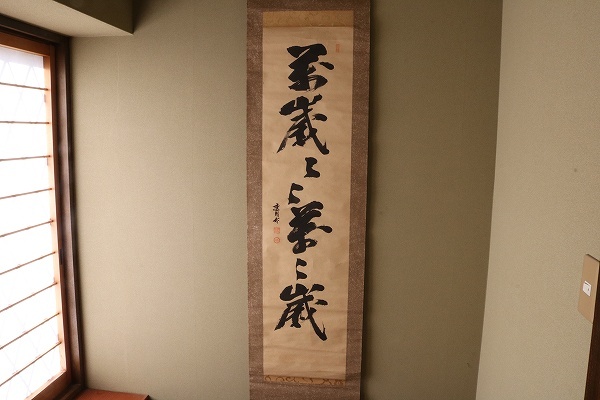 萬歳々々萬々歳